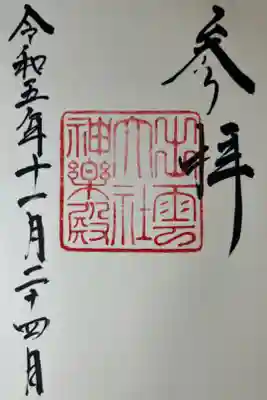 参拝
出雲
大社
神楽殿
令和五年十一月二十四日